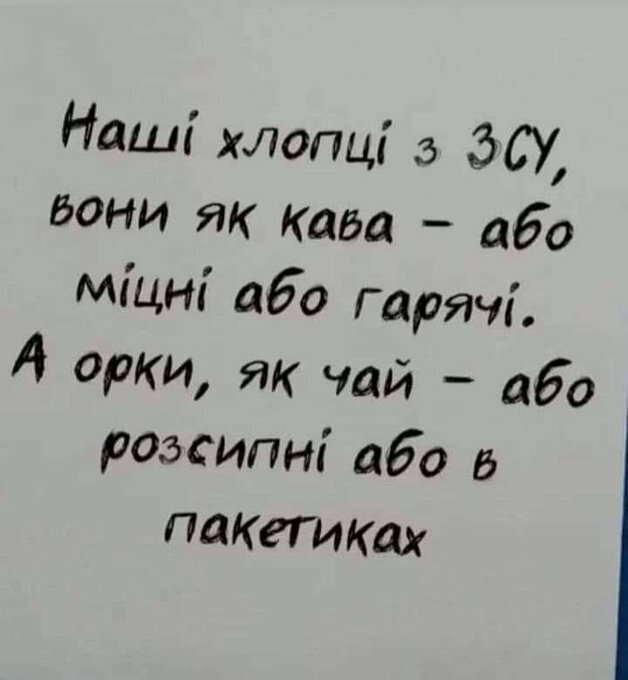 Наші хлопці з ЗСУ,
вони як кава – або
міцні або гарячі.
А орки, як чай – або
розсипні або в
пакетиках